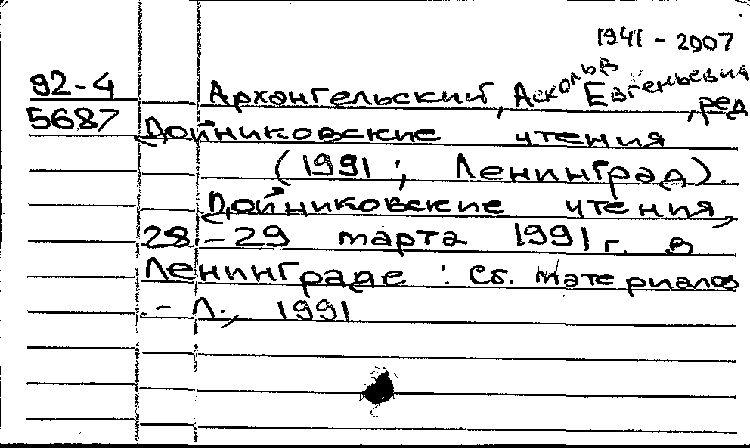 1941 - 2007
92-4 Архангельский, Аскольд Евгеньевич, ред
5687 Дойниковские чтения
(1991 ; Ленинград).
Дойниковские чтения,
28-29 марта 1991 г. в
Ленинграде : Сб. материалов
. - Л., 1991